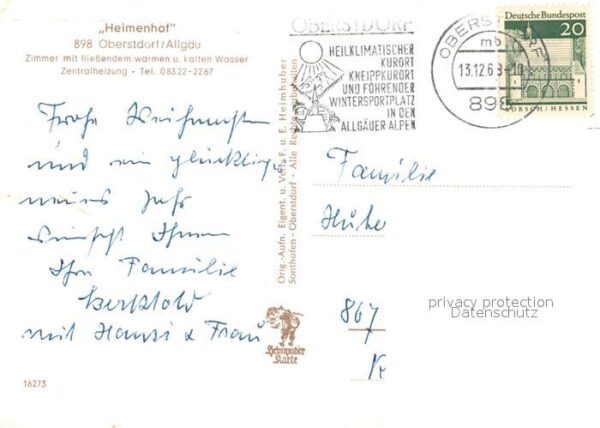 „Heimenhof"
898 Oberstdorf/Allgäu
Zimmer mit fließendem warmen u. kalten Wasser
Zentralheizung - Tel. 08322-2267
Frohe Weihnachten
und ein glückliches
neues Jahr
wünscht Ihnen
Ihre Familie
Berktold
mit Hansi & Frau
16273
Orig.-Aufn. Eigent. u. Verl. F. u. E. Heimhuber
Sonthofen - Oberstdorf - Alle Rechte vorbehalten
Heimhuber
Karte
OBERSTDORF
HEILKLIMATISCHER
KURORT
KNEIPPKURORT
UND FÜHRENDER
WINTERSPORTPLATZ
IN DEN
ALLGÄUER ALPEN
OBERSTDORF
mb
13.12.6
898
Deutsche Bundespost
20
LORSCH/HESSEN
Familie
867
privacy protection
Datenschutz